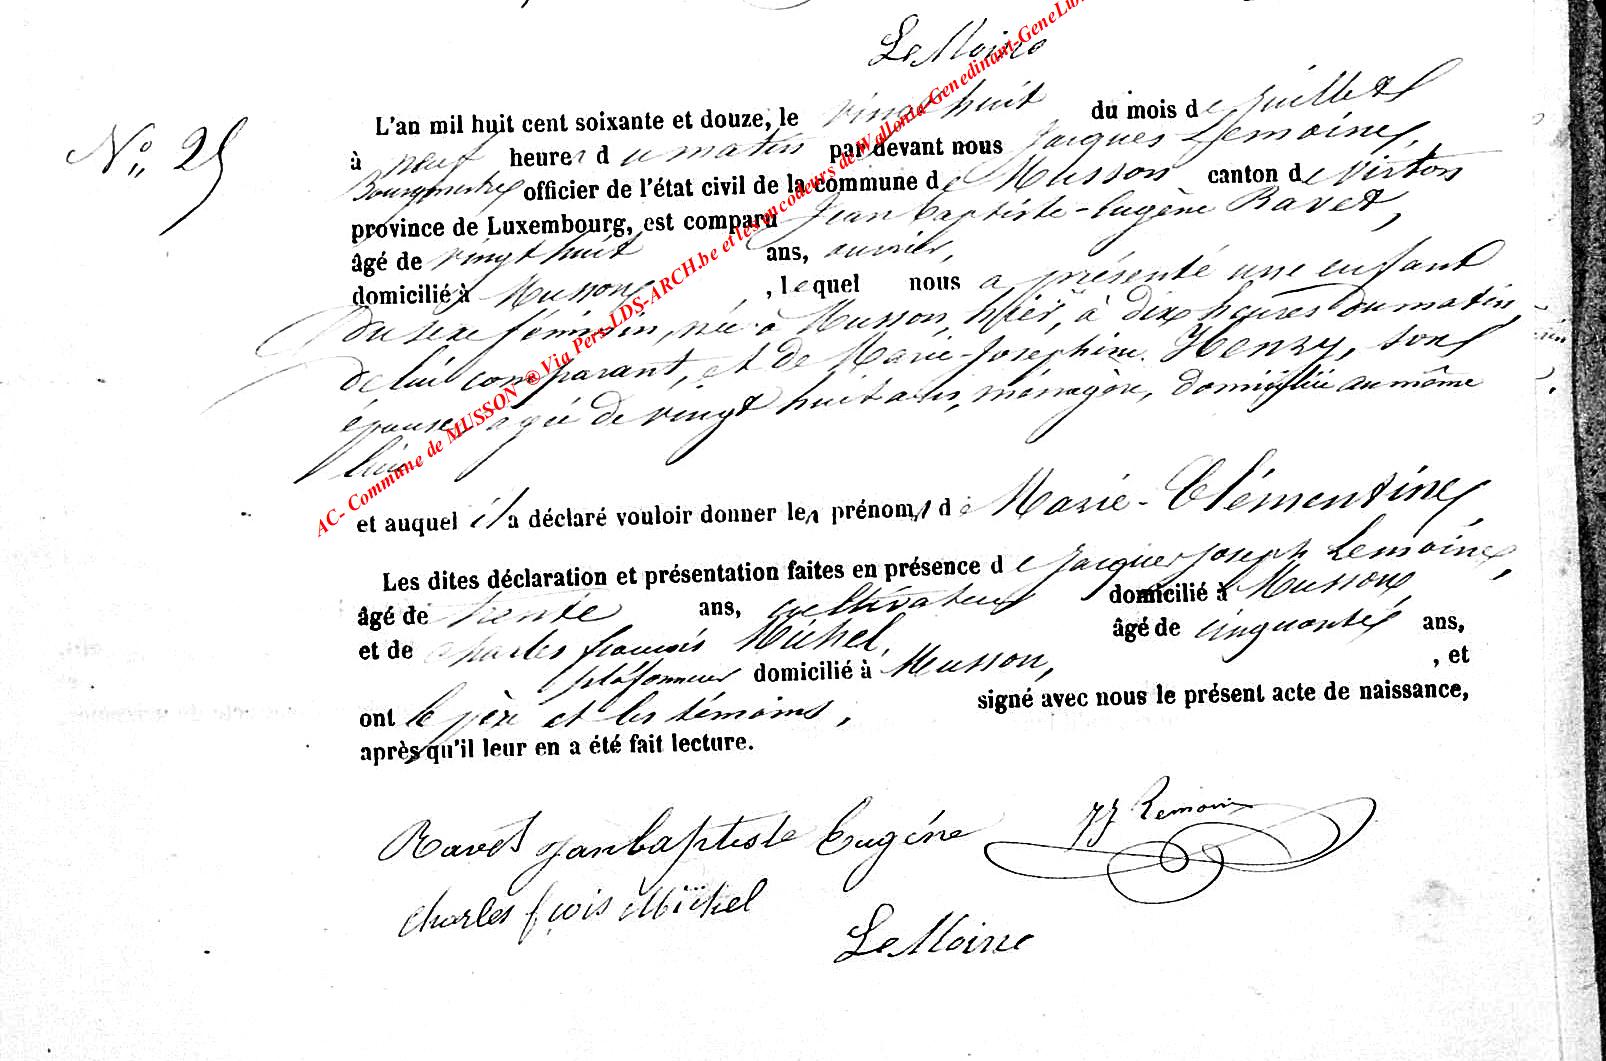 LeMoine
N° 25
L'an mil huit cent soixante et douze, le vingt huit du mois de juillet
à neuf heures du matin par devant nous Jacques Lemoine,
Bourgmestre officier de l'état civil de la commune de Musson canton de Virton
province de Luxembourg, est comparu Jean Baptiste-Eugène Ravet,
âgé de vingt huit ans, ouvrier,
domicilié à Musson, lequel nous a présenté une enfant
du sexe féminin, née à Musson, hier, à dix heures du matin,
de lui comparant, et de Marie-Josephine Henry, son
épouse, agée de vingt huit ans, ménagère, domiciliée au même
lieu
et auquel il a déclaré vouloir donner les prénoms de Marie-Clémentine
Les dites déclaration et présentation faites en présence de Jacques Joseph Lemoine,
âgé de trente ans, cultivateur domicilié à Musson
et de Charles françois Michel, âgé de cinquante ans,
plafonneur domicilié à Musson, , et
ont le père et les témoins, signé avec nous le présent acte de naissance,
après qu'il leur en a été fait lecture.
Ravet Jean baptiste Eugéne JJ Lemoine
Charles fçois Michel
LeMoine
AC- Commune de MUSSON ® Via Pers-LDS-ARCH.be et les encodeurs de Wallonia-Genedinant-GeneLux